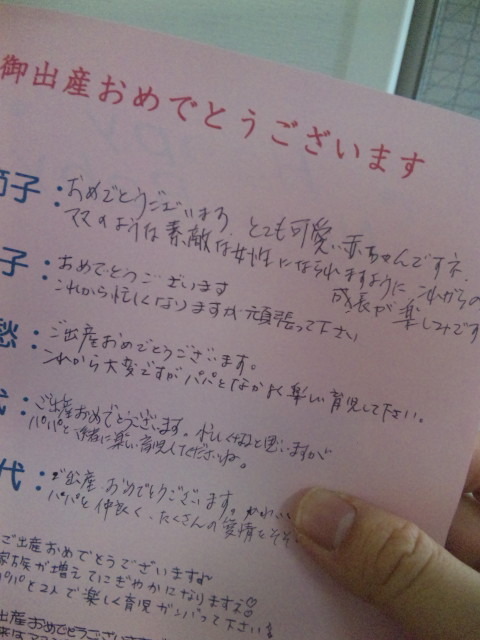 御出産おめでとうございます
子：おめでとうございます。とても可愛い赤ちゃんですネ。
ママのような素敵な女性になられますように これからの
成長が楽しみです
子：おめでとうございます
これから忙しくなりますが頑張って下さい
ご出産おめでとうございます。
これから大変ですがパパとなかよく楽しい育児して下さい。
ご出産おめでとうございます。忙しくなると思いますが
パパと一緒に楽しい育児してくださいね。
代：ご出産おめでとうございます。かわいい
パパと仲良く、たくさんの愛情をそそ
ご出産おめでとうございます
家族が増えてにぎやかになりますネ♡
パパと2人で楽しく育児ガンバって下さい
出産おめでとうござい